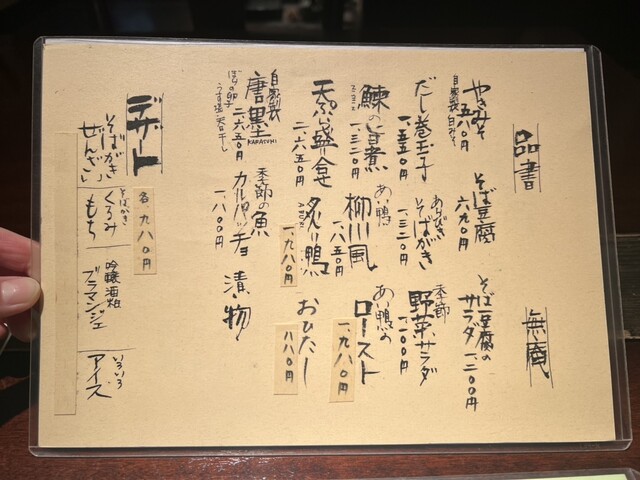 品書
無庵
やきみそ
自家製白みそ
五八〇円
そば豆腐
六九〇円
そば豆腐の
サラダ 一、二〇〇円
だし巻玉子
一、五五〇円
あらびき
そばがき
一、三二〇円
季節
野菜サラダ
一、一〇〇円
鰊の旨煮
一、三二〇円
あい鴨
柳川風
一、六五〇円
あい鴨の
ロースト
一、九八〇円
天ぷら盛り合せ
二、六五〇円
炙り鴨
ABURI
一、九八〇円
おひたし
八八〇円
自家製
唐墨
KARASUMI
ぼらの卵子
うす塩 天日干し
二、六五〇円
季節の魚
カルパッチョ
一、八〇〇円
漬物
デザート
各 九八〇円
そばがき
「ぜんざい」
そばがき
くるみ
もち
吟醸酒粕
ブラマンジェ
いろいろ
アイス